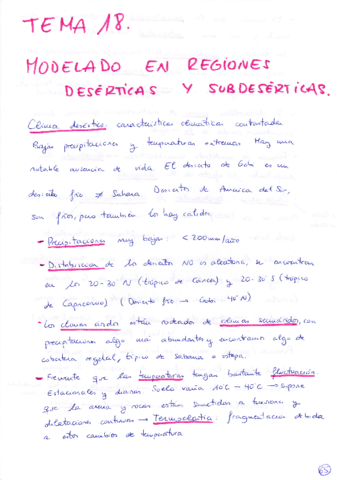 TEMA 18.
MODELADO EN REGIONES
DESÉRTICAS Y SUBDESÉRTICAS.
Clima desértico: características climáticas contrastada
Bajas precipitaciones y temperaturas extremas Hay una
notable ausencia de vida. El desierto de Gobi es un
desierto frío y Sahara. Desiertos de America del Sur,
son fríos, pero también lo hay calido.
- Precipitaciones muy bajas < 200mm/año
- Distribución de los desiertos NO es aleatoria, se encuentran
en los 20-30 N (trópico de Cancer) y 20-30 S (trópico
de Capricornio) (Desierto frío → Gobi 40°N)
- Los climas áridos están rodeados de climas semiáridos, con
precipitaciones algo más abundantes y encontramos algo de
cobertura vegetal, típico de Sabana o estepa.
- Frecuente que las temperaturas tengan bastante fluctuación
Estacionales y diarias Suelo varia 10°C - 40°C → supone
que la arena y rocas están sometidas a tensiones y
dilataciones continuas → Termoclastia: fragmentación debida
a estos cambios de temperatura